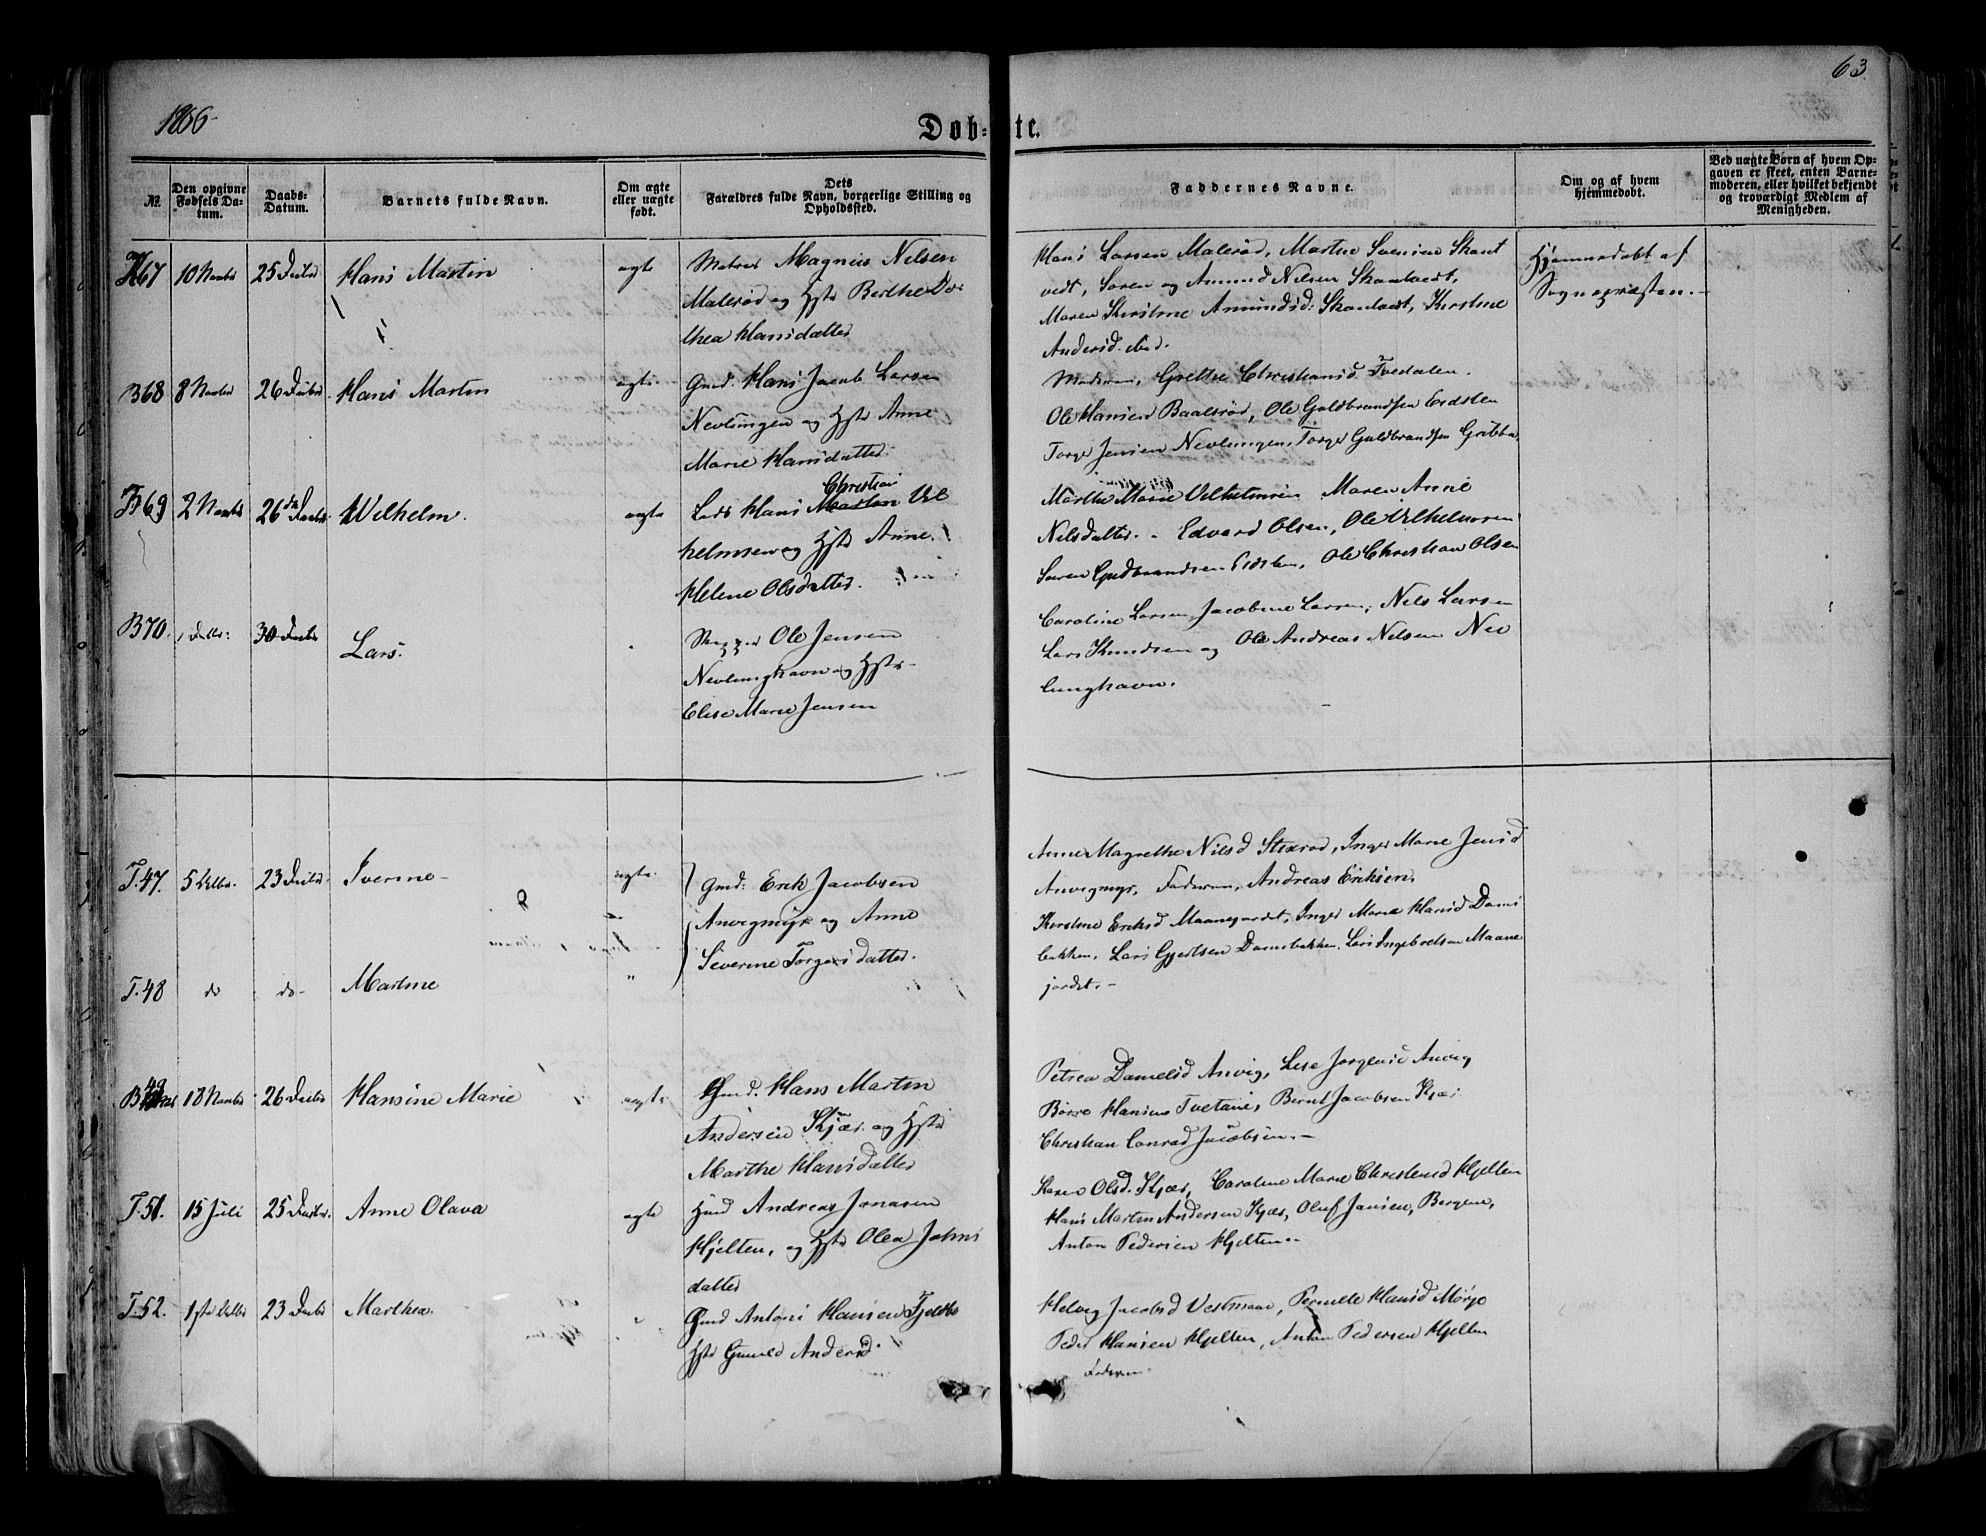 1866
63.
Døb-te.
No.
Den opgivne Fødsels Datum.
Daabs-Datum.
Barnets fulde Navn.
Om ægte eller uægte født.
Dets Forældres fulde Navn, borgerlige Stilling og Opholdssted.
Faddernes Navne.
Om og af hvem hjemmedøbt.
Ved uægte Børn af hvem Opgaven er skeet, enten Barnemoderen, eller hvilket bekjendt og troværdigt Medlem af Menigheden.
67 10 Novbr 25 Decbr Hans Martin ægte
Matros Magnus Nilsen
Malerød og Hstr Berthe Do
thea Hansdatter
Hans Larsen Malerød, Marthe Svenine Skant
vedt, Søren og Amund Nilsen
Maren Kirstine Amundsd:
Andersd.
Hjemmedøbt af
Sognepræsten.
B 68 8 Novbr 26 Decbr Hans Martin ægte
Gmd. Hans Jacob Larsen
Nevlungen og Hstr Anne
Marie Hansdatter
Moderen, Grethe Christiansd Tvedalen.
Ole Hansen Baalsrød, Ole Guldbrandsen Eidsten
Torger Jensen Nevlungen, Torger Guldbrandsen
69 2 Novbr 26 Decbr Wilhelm. ægte
Christian
Lods Hans Martin Vil
helmsen og Hstr Anne
Helene Olsdatter.
Marthe Marie Vilhelmsen Maren Anne
Nilsdatter. - Edvard Olsen, Ole Vilhelmsen
Søren Gudbrandsen Eidsten, Ole Christian Olsen
B 70. 1 Decbr. 30 Decbr Lars.
Skipper Ole Jensen
Nevlunghavn og Hstr
Elise Marie Jensen
Caroline Larsen, Jacobine Larsen, Nils Larsen
Lars Knudsen og Ole Andreas Nilsen Nev
lunghavn.
T. 47. 5 Decbr. 23 Decbr. Iverine ægte
Gmd: Erik Jacobsen
Anvigmyr og Anne
Severine Torgersdatter.
Anne Magrethe Nilsd Inger Marie Jensd
Anvigmyr, Faderen, Andreas Eriksen.
T. 48 do do Martine "
Kirstine Eriksd Maanejordet, Inger Marie Hansd Dams
bakken, Lars Gjertsen Damsbakken. Lars Ingebretsen Maane
jordet. -
B 49 18 Novbr 26 Decbr Hansine Marie ægte
Gmd. Hans Martin
Andersen Kjær. og Hstr
Marthe Hansdatter
Petrea Danielsd Anvig, Lise Jørgensd Anvig
Børre Hansens Tvetane, Bernt Jacobsen Kjær
Christian Conrad Jacobsen. -
T. 51. 15 Juli 25 Decbr. Anne Olava ægte
Hmd Andreas Jonasen
Hjelten, og Hstr Olea Johns
datter
Karen Olsd. Kjær, Caroline Marie Christensd Hjelten
Hans Martin Andersen Kjær, Oluf Jansen, Bergene,
Anton Pedersen Hjelten. -
T. 52. 1ste Decbr 23 Decbr Marthea. "
Gmd Anton Hansen
Hstr Gunild Andersd.
Helvig Jacobsd Vestmaae, Pernille Hansd Mørje
Peder Hansen Hjelten, Anton Pedersen Hjelten
Faderen